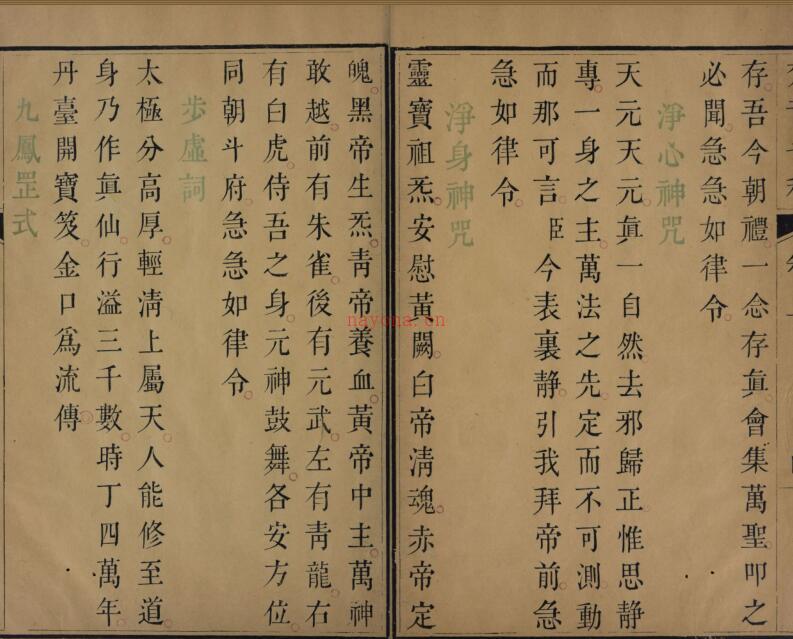 存吾今朝禮一念存眞會集萬聖叩之
必聞急急如律令
淨心神咒
天元天元眞一自然去邪歸正惟思靜
專一身之主萬法之先定而不可測動
而那可言臣今表裏靜引我拜帝前急
急如律令
淨身神咒
靈寶祖炁安慰黃闕白帝淸魂赤帝定
魄黑帝生炁靑帝養血黃帝中主萬神
敢越前有朱雀後有元武左有靑龍右
有白虎侍吾之身元神鼓舞各安方位
同朝斗府急急如律令
步虛詞
太極分高厚輕淸上屬天人能修至道
身乃作眞仙行溢三千數時丁四萬年
丹臺開寶笈金口爲流傳
九鳳罡式
nayona.cn